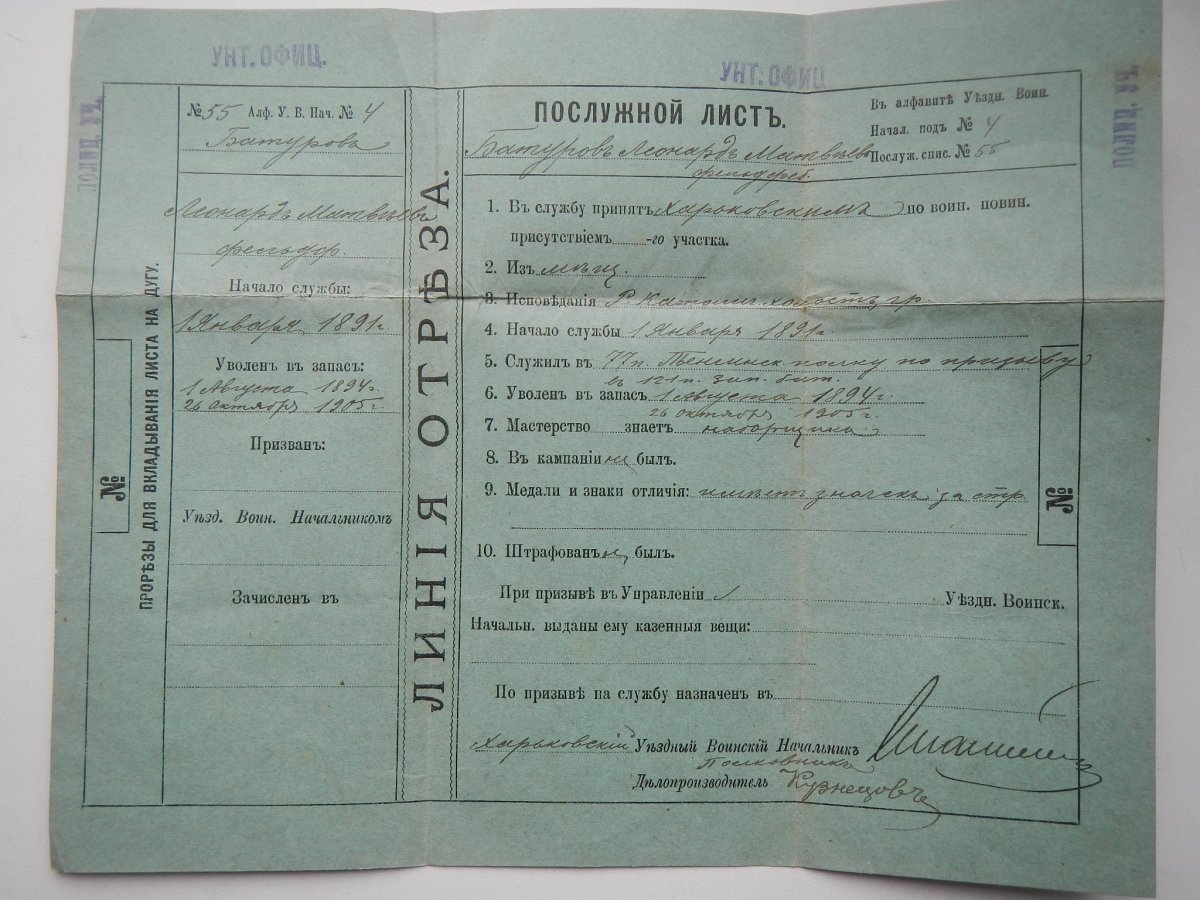 УНТ. ОФИЦ.
УНТ. ОФИЦ
ПОЛИЦ. УЧ.
ПОЛИЦ. УЧ.
№ 55 Алф. У. В. Нач. № 4
Батуровъ
Леонардъ Матвѣевъ
фельдф.
Начало службы:
1 Января 1891 г.
Уволен въ запасъ:
1 Августа 1894 г.
26 Октября 1905 г.
Призванъ:
Уѣзд. Воин. Начальникомъ
Зачисленъ въ
№
ПРОРѢЗЫ ДЛЯ ВКЛАДЫВАНІЯ ЛИСТА НА ДУГУ.
ЛИНІЯ ОТРѢЗА.
ПОСЛУЖНОЙ ЛИСТЪ.
Въ алфавитѣ Уѣздн. Воин.
Начал. подъ № 4
Послуж. спис. № 55
Батуровъ Леонардъ Матвѣевъ
фельдфеб.
1. Въ службу принятъ Харьковскимъ по воин. повин.
присутствіемъ -го участка.
2. Изъ мѣщ.
3. Исповѣданія Р. Католич. холостъ, гр.
4. Начало службы 1 Января 1891 г.
5. Служилъ въ 77 п. Тенгинск полку по призыву
въ 121 п. зап. бат.
6. Уволенъ въ запасъ 1 Августа 1894 г.
26 Октября 1905 г.
7. Мастерство знаетъ наборщика
8. Въ кампаніи не былъ.
9. Медали и знаки отличія: имѣетъ значекъ за стр.
10. Штрафованъ не былъ.
При призывѣ въ Управленіи Уѣздн. Воинск.
Начальн. выданы ему казенныя вещи:
По призывѣ на службу назначенъ въ
№
Харьковскій Уѣздный Воинскій Начальникъ
Полковникъ
Дѣлопроизводитель Кузнецовъ